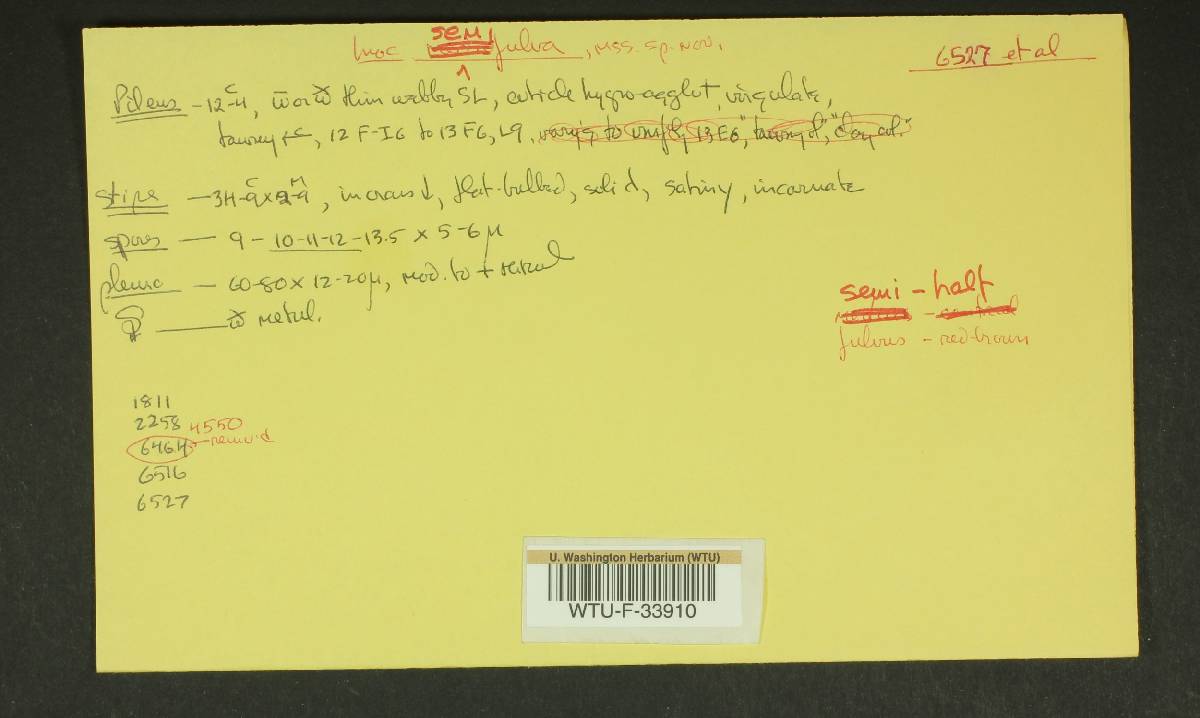 Inoc semi fulva, mss. sp. nov.
6527 et al
Pileus - 12-4, thin webby SL, cuticle hygro-agglut, virgulate,
tawny, 12 F-I6 to 13 F6, L9. vary'g to 13 E6", "tawny ol", "clay col."
stipe - 34-9x2-9, incras ↓, flat-bulbed, solid, satiny, incarnate
spores - 9-10-11-12-13.5 x 5-6 μ
pleuro - 60-80 x 12-20μ, mod. to +
metul.
semi - half
fulvus - red-brown
1811
2258 4550
6464 - remov'd
6516
6527
U. Washington Herbarium (WTU)
WTU-F-33910